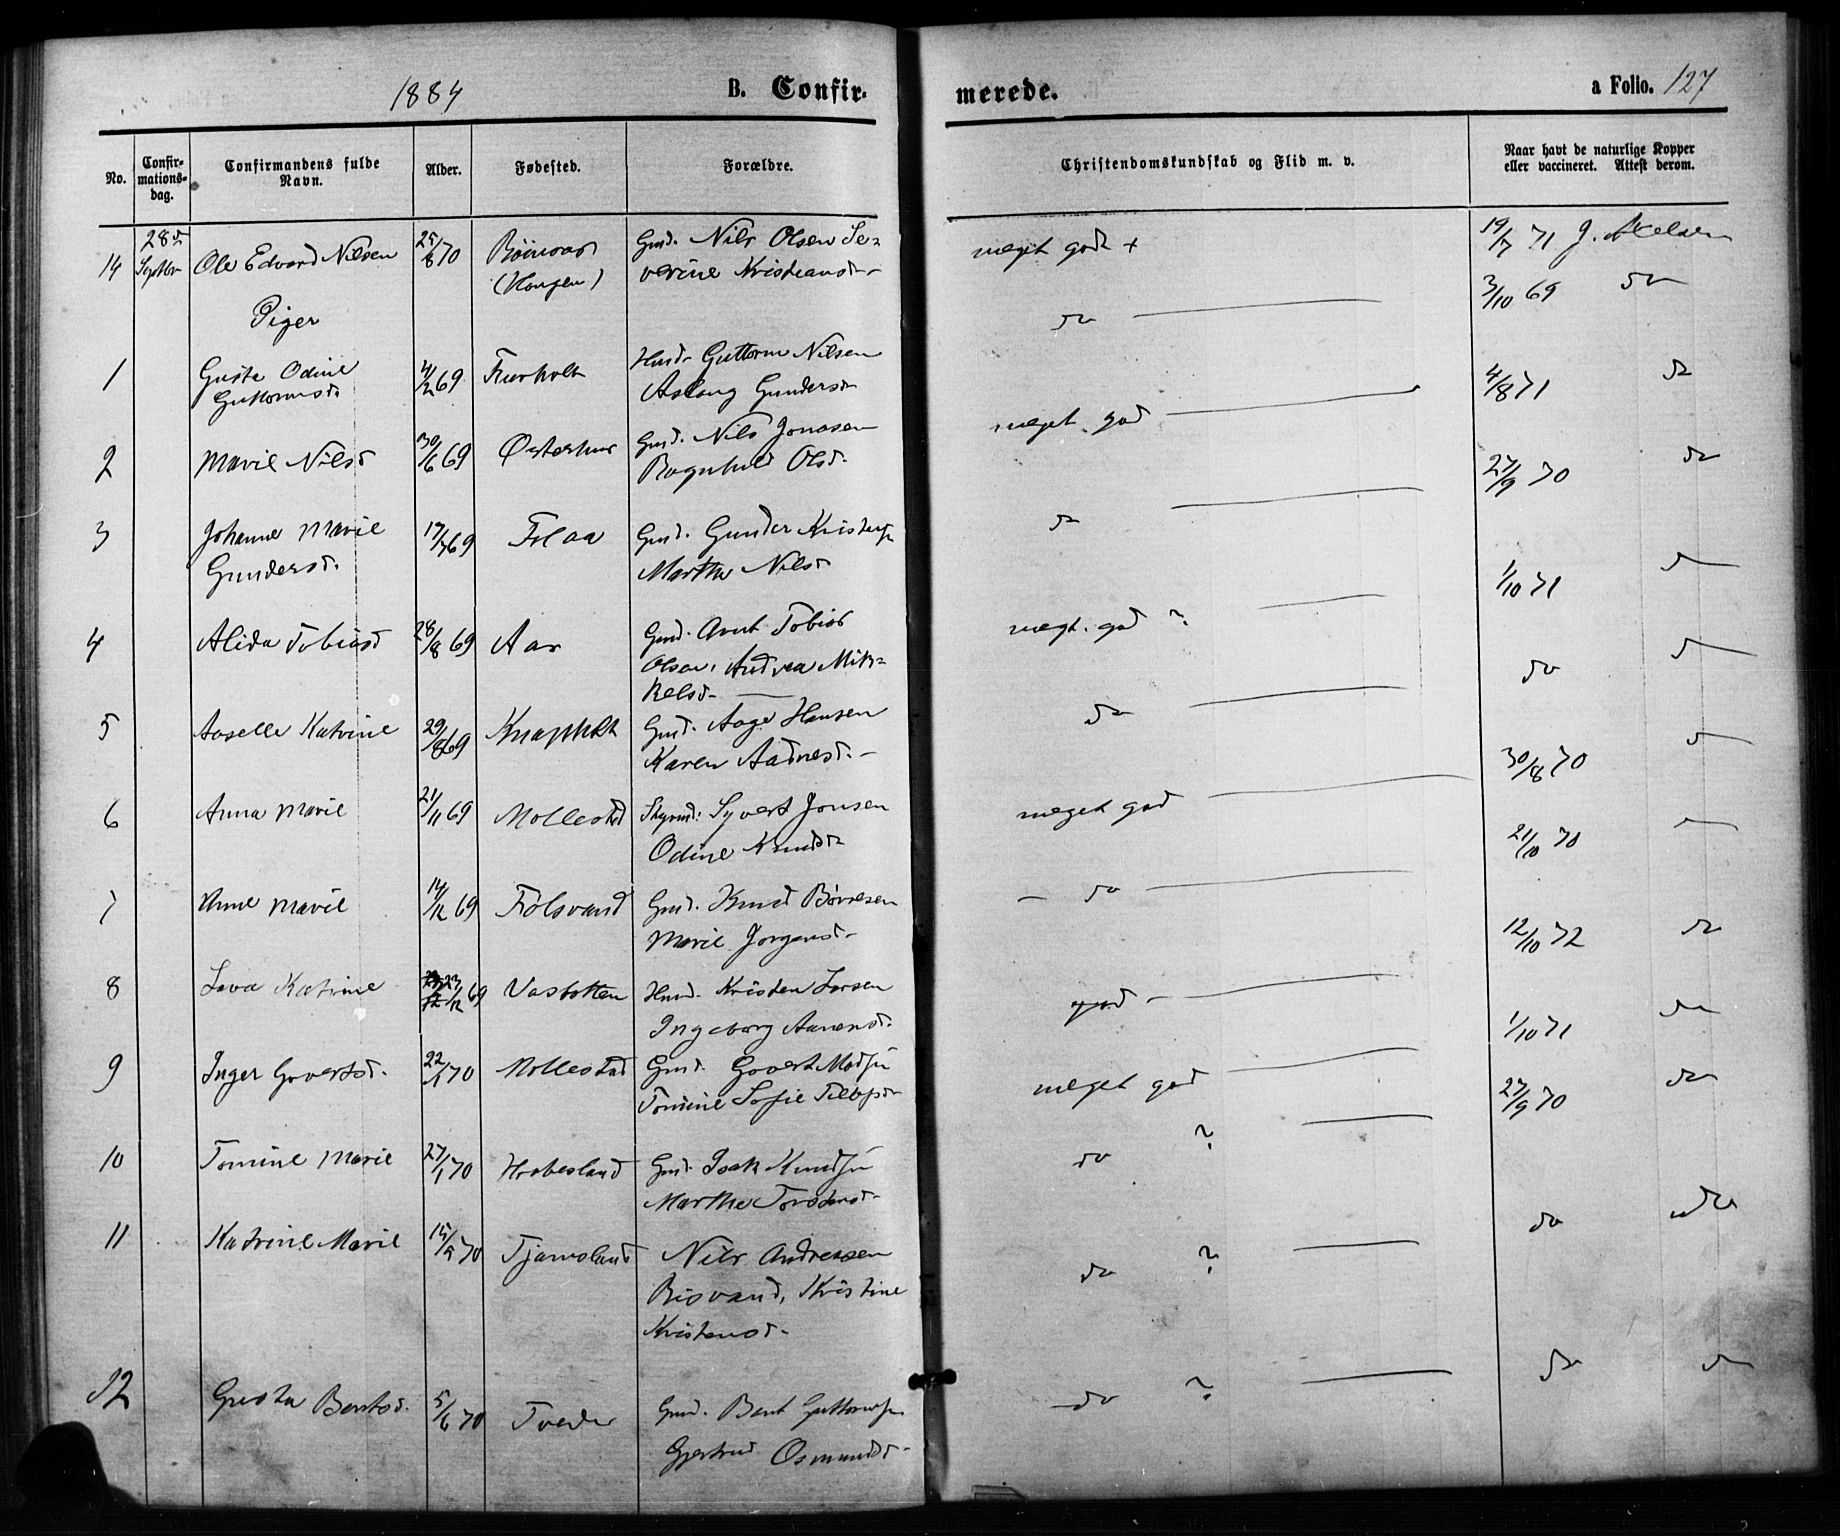 1884 B. Confir- merede. a Folio. 127
No. Confir-mations-dag. Confirmandens fulde Navn. Alder. Fødested. Forældre. Christendomskundskab og Flid m. v. Naar havt de naturlige Kopper eller vaccineret. Attest derom.
14 28de Septbr Ole Edvard Nilsen 25/8 70 (Haugen) Gmd. Nils Olsen Se- meget godt + 19/7 71 J. Axelsen
verine Kristiansd.
Piger
do 3/10 69 do
1 Gusta Odine 4/2 69 Furholt Husd. Guttorm Nilsen
Guttormsd. Aslaug Gundersd.
meget god 4/8 71 do
2 Marie Nilsd 30/6 69 Østerhus Gmd. Nils Jonasen
Ragnhild Olsd.
do 27/9 70 do
3 Johanne Marie 17/7 69 Flaa Gmd. Gunder Kristensen
Gundersd. Marthe Nilsd
megt. god ? 1/10 71 do
4 Alida Tobiasd 28/8 69 Aas Gmd. Arnt Tobias
Olsen, Andrea Mik-
kelsd.
do do do
5 Aaselle Katrine 29/8 69 Knapholt Gmd. Aage Hansen
Karen Aadnesd.
meget god 30/8 70 do
6 Anna Marie 21/11 69 Mollestad Syvert Jonsen
Odine Knudsd.
do 21/10 70
7 Anne Marie 14/12 69 Folsvand Gmd. Knud Børresen
Marie Jørgensd.
god 12/10 72 do
8 Lova Katrine 23/12 69 Vasbotten Husd. Kristen Larsen
Ingeborg Aanensd.
meget god 1/10 71 do
9 Inger Govertsd. 22/1 70 Mollestad Gmd. Govert Madsen
Tomine Sofie
do ? 27/9 70 do
10 Tomine Marie 27/1 70 Hrabesland Gmd. Isak Knudsen
Marthe
do ? do do
11 Katrine Marie 15/5 70 Tjamsland Nils Andreasen
Risvand, Kristine
Kristensd.
do ? do do
12 Gusta Bentsd. 5/6 70 Tveder Gmd. Bent Guttormsen
Gjertrud Osmundsd.